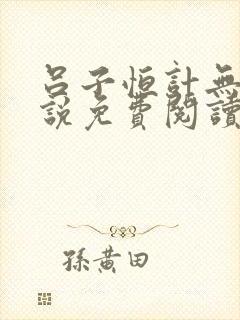 呂子恒計無
說免費閱讀
孫黃田